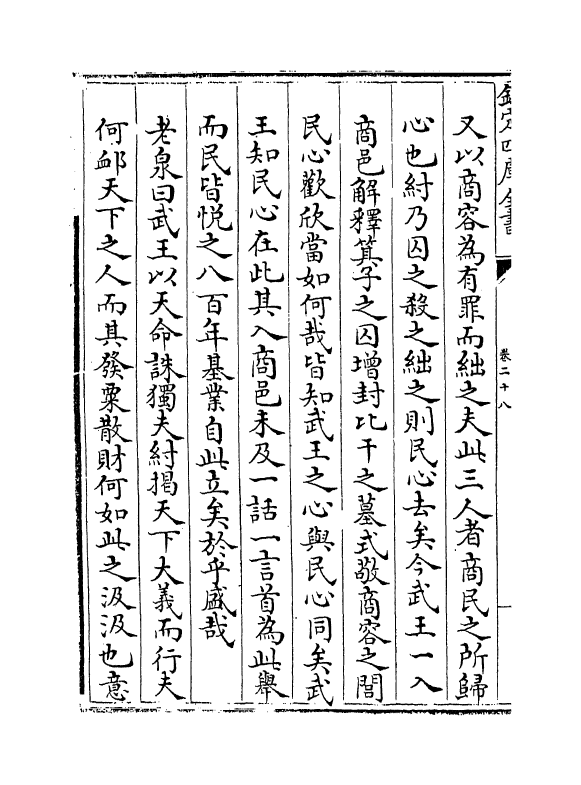 欽定四庫全書
卷二十八
又以商容為有罪而絀之夫此三人者商民之所歸
心也紂乃囚之殺之絀之則民心去矣今武王一入
商邑解釋箕子之囚增封比干之墓式敬商容之閭
民心歡欣當如何哉皆知武王之心與民心同矣武
王知民心在此其入商邑未及一話一言首為此舉
而民皆悅之八百年基業自此立矣於乎盛哉
老泉曰武王以天命誅獨夫紂揭天下大義而行夫
何䘏天下之人而其發粟散財何如此之汲汲也意